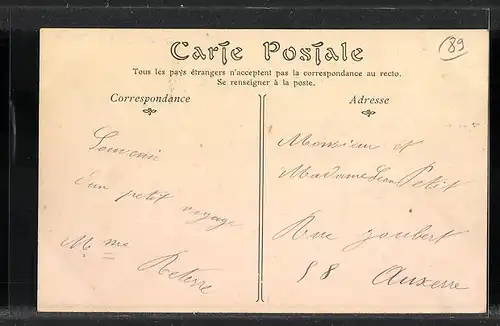 89
Carte Postale
Tous les pays étrangers n'acceptent pas la correspondance au recto.
Se renseigner à la poste.
Correspondance
Souvenir
d'un petit voyage
Mme
Adresse
Monsieur et
Madame Léon Petit
Rue Joubert
58
Auxerre